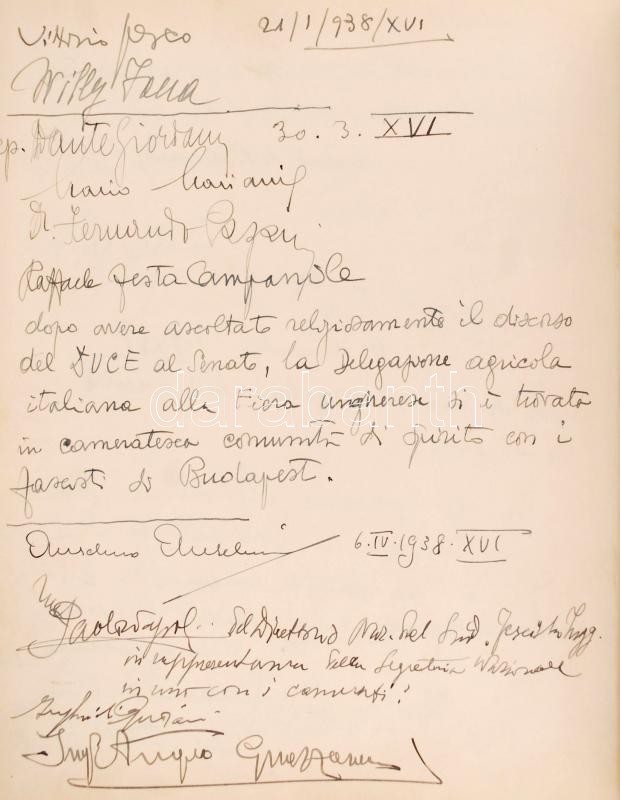 Vittorio 21/1/938/XVI
Willy
Dante Giordany 30. 3. XVI
Mario Mariani
Dr. Fernando
Raffaele Testa Campanile
dopo avere ascoltato religiosamente il discorso
del DUCE al Senato, la Delegazione agricola
italiana alla Fiera ungherese si è trovata
in cameratesca comunità di spirito con i
fascisti di Budapest.
Anselmo Anselmi 6.IV.1938.XVI
del Direttorio Naz. del Sind.
in rappresentanza della Segreteria Nazionale
in uno con i camerati!
Ing. Angelo
darabanth